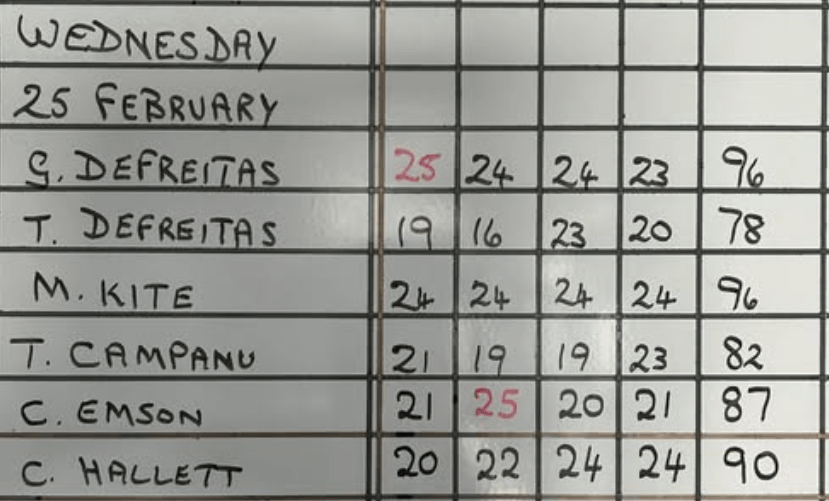 WEDNESDAY
25 FEBRUARY
G. DEFREITAS 25 24 24 23 96
T. DEFREITAS 19 16 23 20 78
M. KITE 24 24 24 24 96
T. CAMPANU 21 19 19 23 82
C. EMSON 21 25 20 21 87
C. HALLETT 20 22 24 24 90